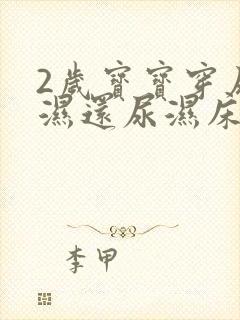 2歲寶寶穿
濕還尿濕床
李甲